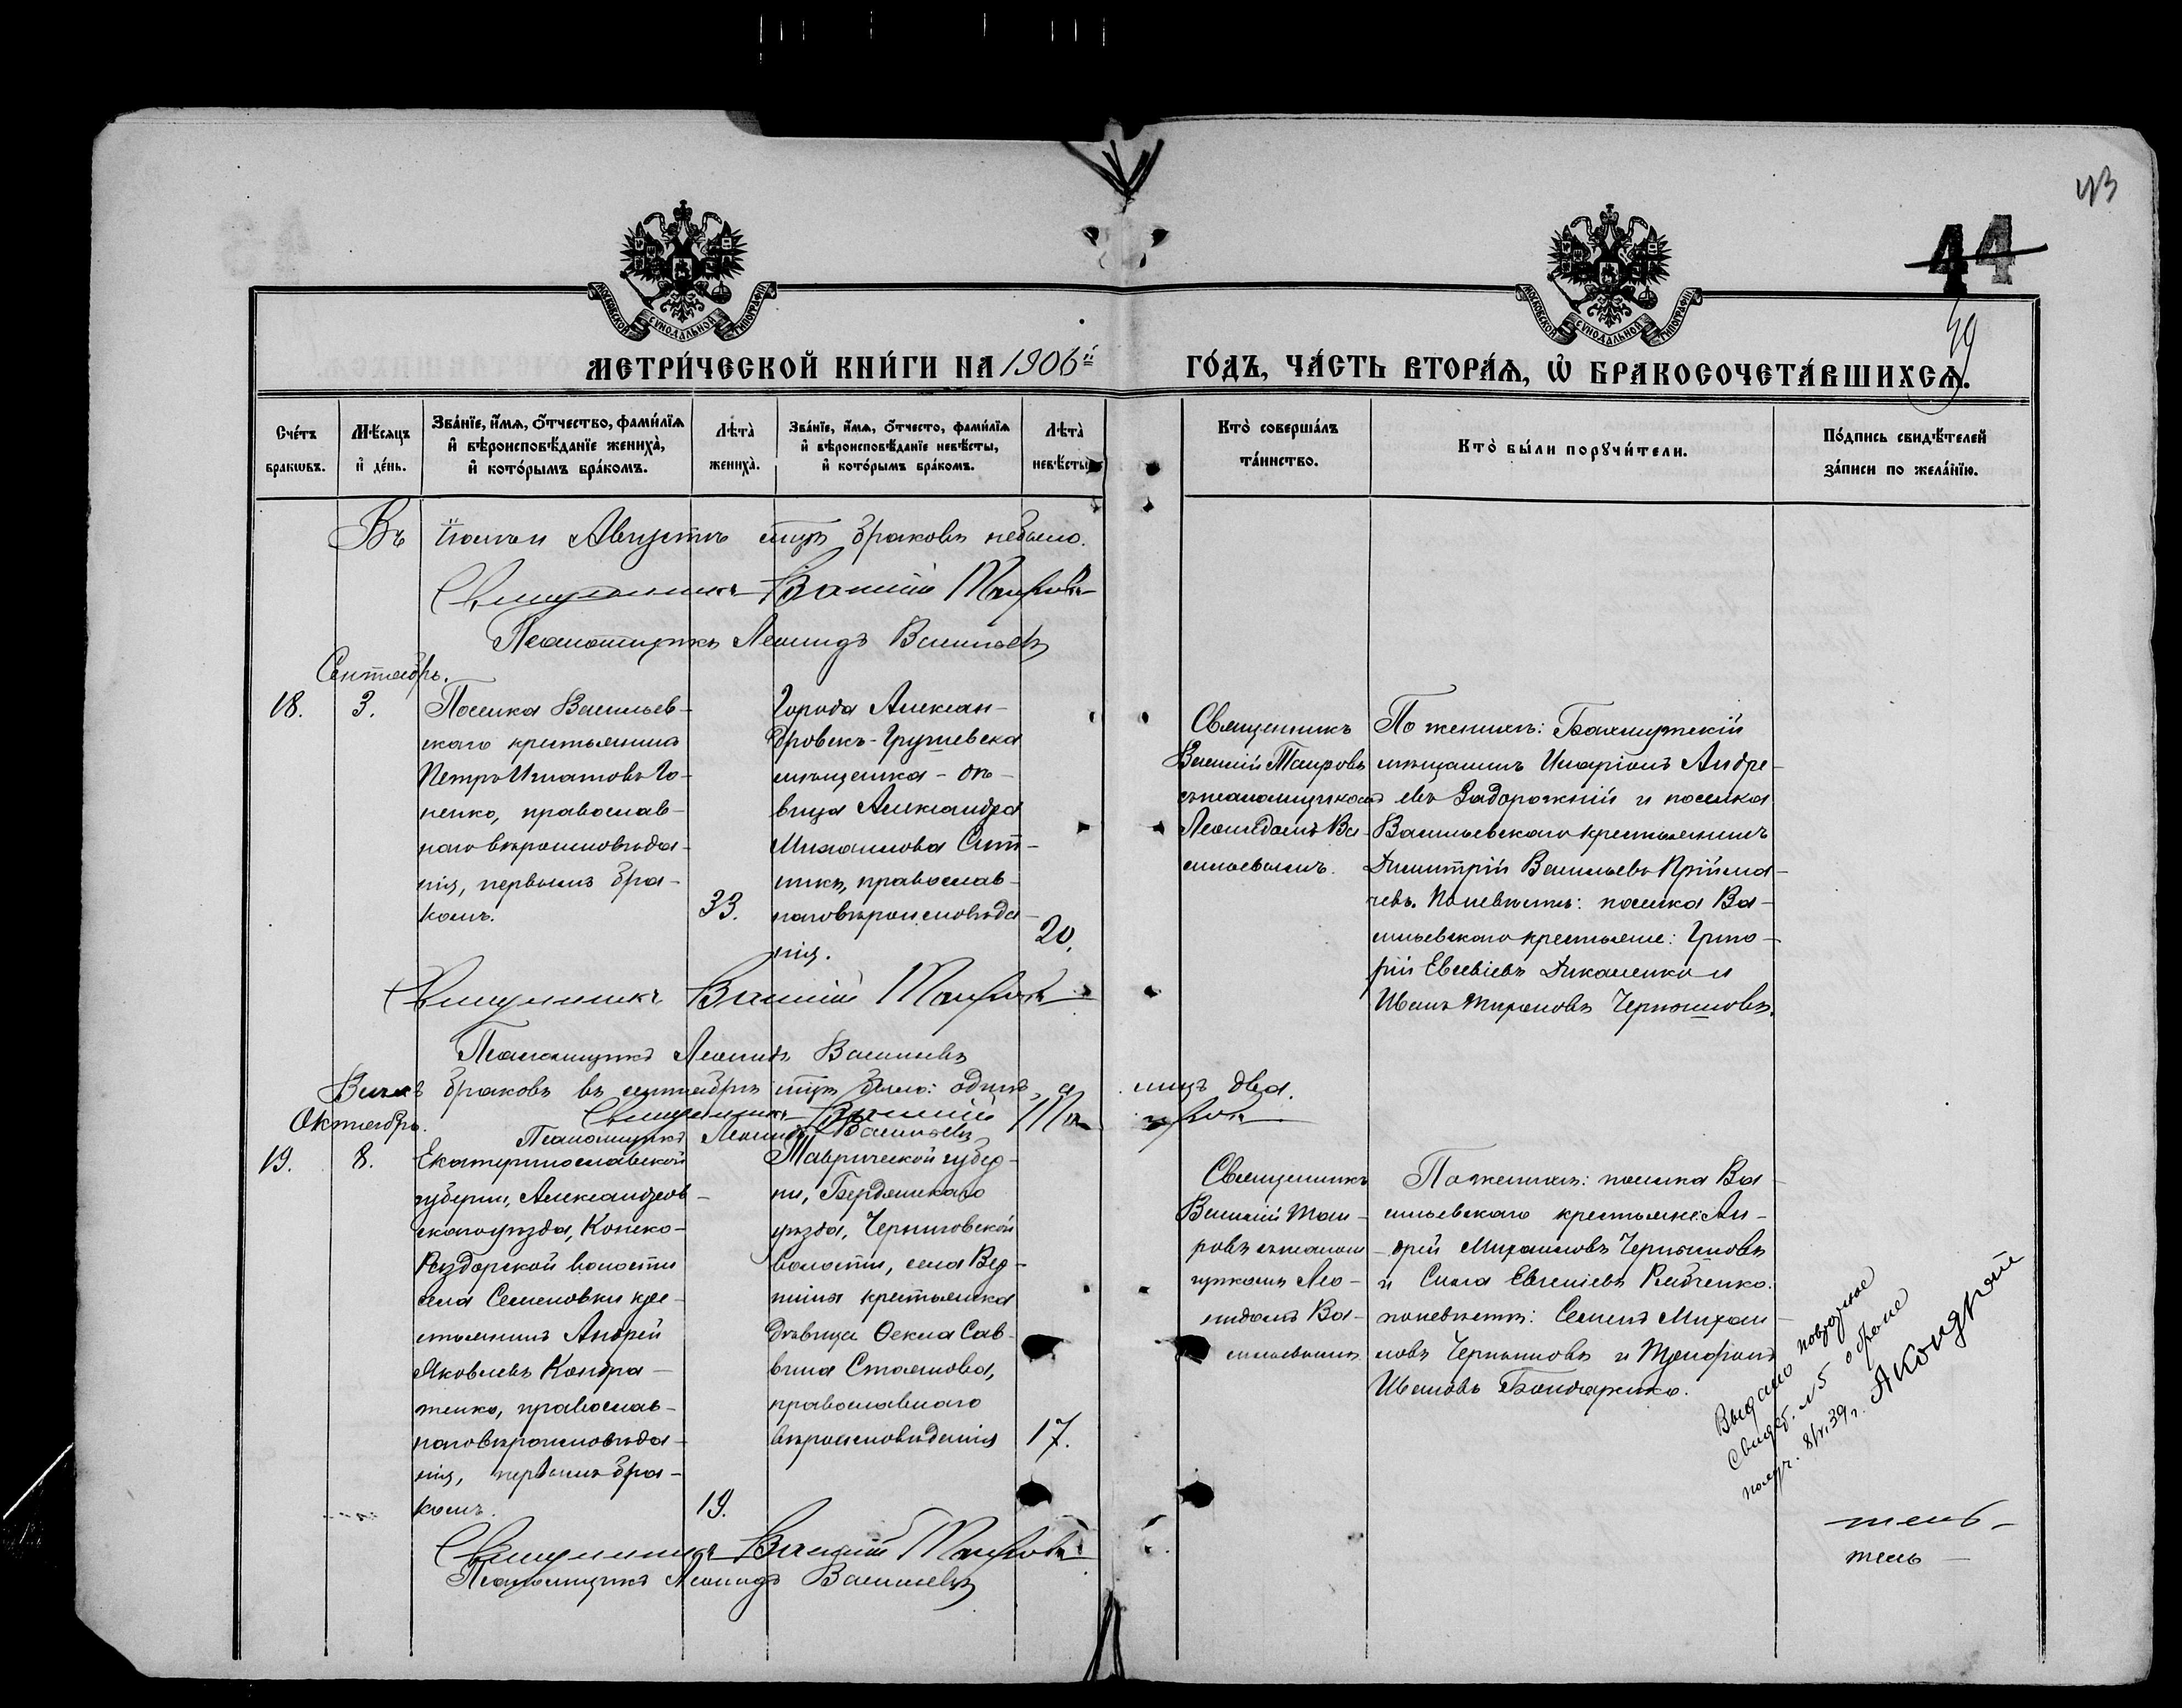 43
44
59
МОСКОВСКОЙ СѴНОДАЛЬНОЙ ТИПОГРАФІИ
МОСКОВСКОЙ СѴНОДАЛЬНОЙ ТИПОГРАФІИ
МЕТРИ́ЧЕСКОЙ КНИ́ГИ НА 1906й
ГО́ДЪ, ЧА́СТЬ ВТОРА́Я, Ѡ҆ БРАКОСОЧЕТА́ВШИХСЯ.
Сче́тъ
бракѡвъ.
Мѣсяцъ
и҆ де́нь.
Зва́нїе, и҆́мя, ѻ҆́тчество, фами́лїя
и҆ вѣроисповѣ́данїе жениха̀,
и҆ кото́рымъ бра́комъ.
Лѣта̀
жениха̀.
Зва́нїе, и҆́мя, ѻ҆́тчесто, фами́лїя
и҆ вѣроисповѣ́данїе невѣ́сты,
и҆ кото́рымъ бра́комъ.
Лѣта̀
невѣ́сты
Кто̀ соверша́лъ
та́инство.
Кто̀ бы́ли порꙋчи́тели.
По́дпись свидѣ́телей
за́писи по жела́нїю.
Въ Іюлѣ и Августѣ мцѣ браковъ небыло.
Священникъ Василій Таировъ
Псаломщикъ Леонидъ Васильевъ
Сентябрь.
18.
3.
Поселка Васильев-
скаго крестьянинъ
Петръ Игнатовъ Го-
ненко, православ-
наго вѣроисповѣда-
нія, первымъ бра-
комъ.
33.
Города Алексан-
дровскъ-Грушевска
мѣщанка - дѣ-
вица Александра
Михаилова Сит-
никъ, православ-
наго вѣроисповѣда-
нія.
20.
Священникъ
Василій Таировъ
съ псаломщикомъ
Леонидомъ Ва-
сильевымъ.
По женихѣ: Бахмутскій
мѣщанинъ Иларіонъ Андре-
евъ Задорожній и поселка
Васильевскаго крестьянинъ
Димитрій Васильевъ Прійма-
чевъ. По невѣстѣ: поселка Ва-
сильевскаго крестьяне: Григо-
рій Евсевіевъ Дикаленко и
Иванъ Мироновъ Чернышовъ.
Священникъ Василій Таировъ
Псаломщикъ Леонидъ Васильевъ
Всѣхъ браковъ въ сентябрѣ мцѣ было: одинъ, а лицъ два.
Священникъ Василій Таировъ
Псаломщикъ Леонидъ Васильевъ
Октябрь.
19.
8.
Екатеринославской
губерніи, Александров-
скаго уѣзда, Конско-
Раздорской волости
села Семеновки кре-
стьянинъ Андрей
Яковлевъ Кондра-
тенко, православ-
наго вѣроисповѣда-
нія, первымъ бра-
комъ.
19.
Таврической губер-
ніи, Бердянскаго
уѣзда, Черниговской
волости, села
крестьянка
дѣвица Ѳекла Сав-
вина Стоянова,
православнаго
вѣроисповѣданія
17.
Священникъ
Василій Таи-
ровъ съ псалом-
щикомъ Лео-
нидомъ Ва-
сильевымъ.
По женихѣ: поселка Ва-
сильевскаго крестьяне: Ан-
дрей Михаиловъ Чернышовъ
и Сила Евгеніевъ Рябченко.
по невѣстѣ: Семенъ Михаи-
ловъ Чернышовъ и Трифонъ
Ивановъ Бондаренко.
Выдано повторное
свидет. № 5 о браке
получ. 8/VI.39 г. АКондрат
тель-
тель -
Священникъ Василій Таировъ
Псаломщикъ Леонидъ Васильевъ